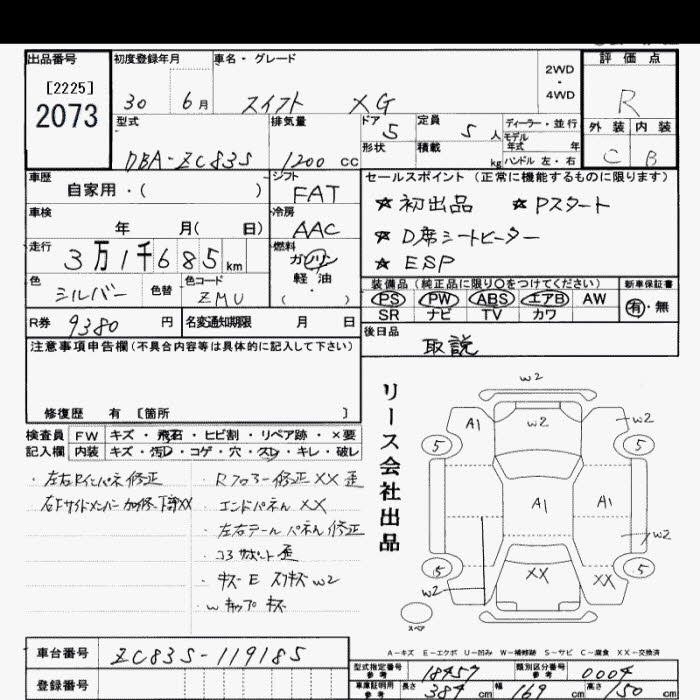 出品番号
[2225]
2073
初度登録年月
30 6月
車名・グレード
スイフト XG
2WD
・
4WD
評価点
R
外装 内装
C B
型式
DBA-ZC83S
排気量
1200 cc
ドア 5
形状
定員 5 人
積載 kg
ディーラー・並行
モデル年式 年
ハンドル 左・右
車歴
自家用・( )
シフト
FAT
車検
年 月( 日)
冷房
AAC
走行
3万1千685km
燃料
ガソリン
軽油
・( )
色
シルバー
色替
色コード
ZMU
R券 9380 円
名変通知期限 月 日
セールスポイント (正常に機能するものに限ります)
☆初出品 ☆Pスタート
☆D席シートヒーター
☆ESP
装備品 (純正品に限り○をつけてください)
PS PW ABS エアB AW
SR ナビ TV カワ
新車保証書
有・無
後日品
取説
注意事項申告欄(不具合内容等は具体的に記入して下さい)
修復歴 有 [箇所 ]
検査員記入欄
FW キズ・飛石・ヒビ割・リペア跡・×要
内装 キズ・汚レ・コゲ・穴・スレ・キレ・破レ
・左右Rインパネ修正
右Fサイドメンバー
・Rフロアー修正XX歪
・エンドパネルXX
・左右テールパネル修正
・コアサポート歪
・キズE スリキズW2
・Wキャップキズ
リース会社出品
W2
A1
W2
W2
5
5
A1
A1
W2
5
XX
XX
5
W2
スペア
A－キズ E－エクボ U－凹み W－補修跡 S－サビ C－腐食 XX－交換済
車台番号
ZC83S-119185
登録番号
型式指定番号
参考
18457
類別区分番号
参考
0004
車庫証明用
参考
長さ 384 cm
幅 169 cm
高さ 150 cm